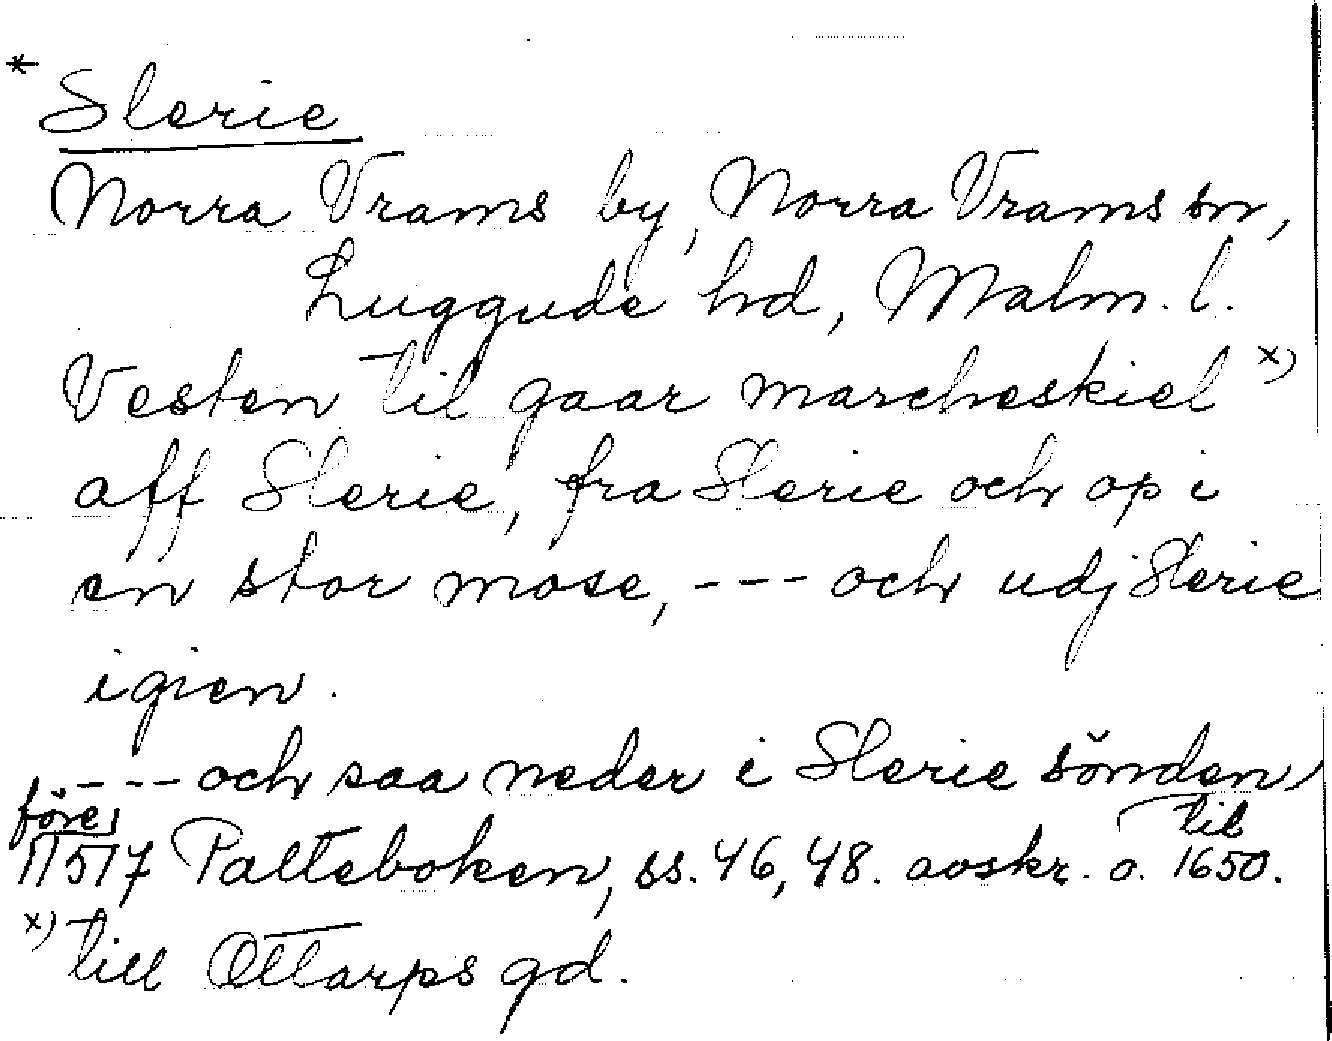 * Slerie
Norra Vrams by, Norra Vrams sn,
Luggude hd, Malm. l.
Vesten til gaar marcheskiel x)
aff Slerie, fra Slerie och op i
en stor mose, --- och udj Slerie
igien.
--- och saa neder i Slerie sönden
före til
1/5 17 Palteboken, ss. 46, 48. avskr. o. 1650.
x) till Ottarps gd.